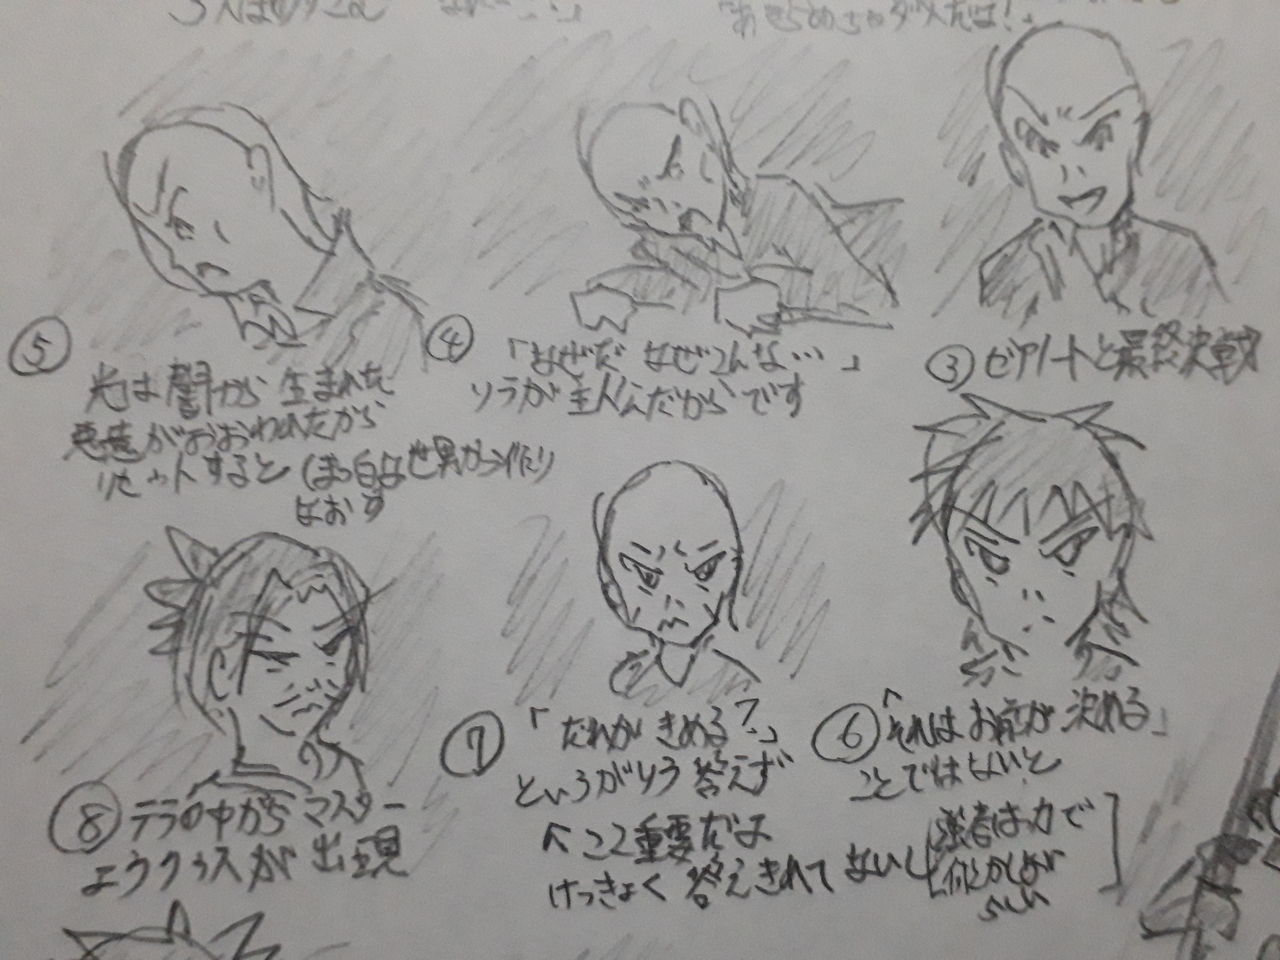 「あせらめちゃダメだよ！」
③ゼアノートと最終決戦
④「なぜだ なぜこんな…」
ソラが主人公だからです
⑤
光は闇から生まれた
悪意がおおわれたから
リセットすると（まっ白な世界から作り
なおす
⑥「それはお前が決める」
ことではないと
強者は力で
何とかしろが
らしい
⑦「だれがきめる？」
というがりう答えず
↑ここ重要だよ
けっきょく答えきれてないし
⑧テラの中からマスター
エラクゥスが出現